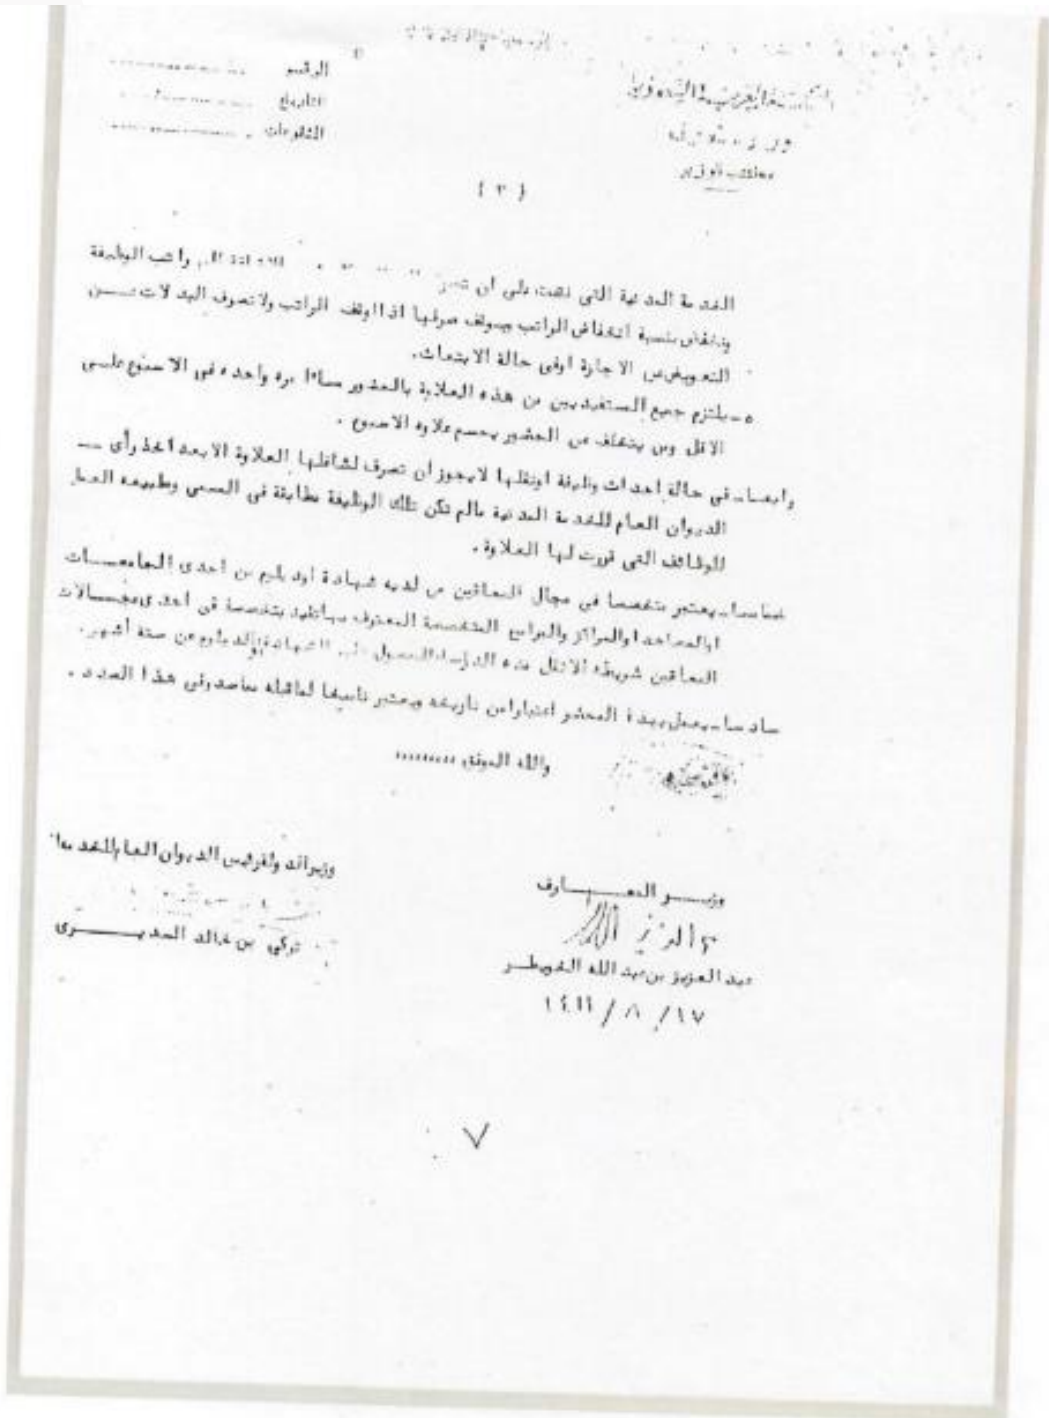 الرقم
التاريخ
المشفوعات
مكتب الوزير
الخدمة المدنية التى نصت على ان راتب الوظيفة
وتخفض بنسبة انخفاض الراتب ويوقف صرفها اذا اوقف الراتب ولا تصرف البدلات عن
التعويض عن الاجازة اوفى حالة الابتعاث.
٥ـ يلتزم جميع المستفيدين من هذه العلاوة بالحضور مساءا مره واحده فى الاسبوع على
الاقل ومن يتخلف عن الحضور يحسم علاوه الاسبوع .
رابعا ـ فى حالة إحداث وظيفة اونقلها لايجوز ان تصرف لشاغلها العلاوة الا بعد أخذ رأى ــ
الديوان العام للخدمة المدنية مالم تكن تلك الوظيفة مطابقة فى المسمى وطبيعه العمل
للوظائف التى قررت لها العلاوة .
خامسا ـ يعتبر متخصصا فى مجال المعاقين من لديه شهادة اودبلوم من احدى الجامعـــات
اوالمعاهد اوالمراكز والبرامج المتخصصة المعترف بها تفيد بتخصصة فى احدى مجــالات
المعاقين شريطة الا تقل مده الدراسة للحصول على الشهادة اوالدبلوم عن ستة أشهر .
سادسا ـ يعمل بهذا المحضر اعتبارا من تاريخه ويعتبر ناسخا لماقبله مماصدرفى هذا الصدد .
والله الموفق ،،،،،،،،،
وزيـــر المعـــــارف
وزيرالدولةورئيس الديوان العام للخدمة
عبد العزيز بن عبد الله الخويطـر
تركى بن خالد السديــــرى
١٧ / ٨ / ١٤١١
٧